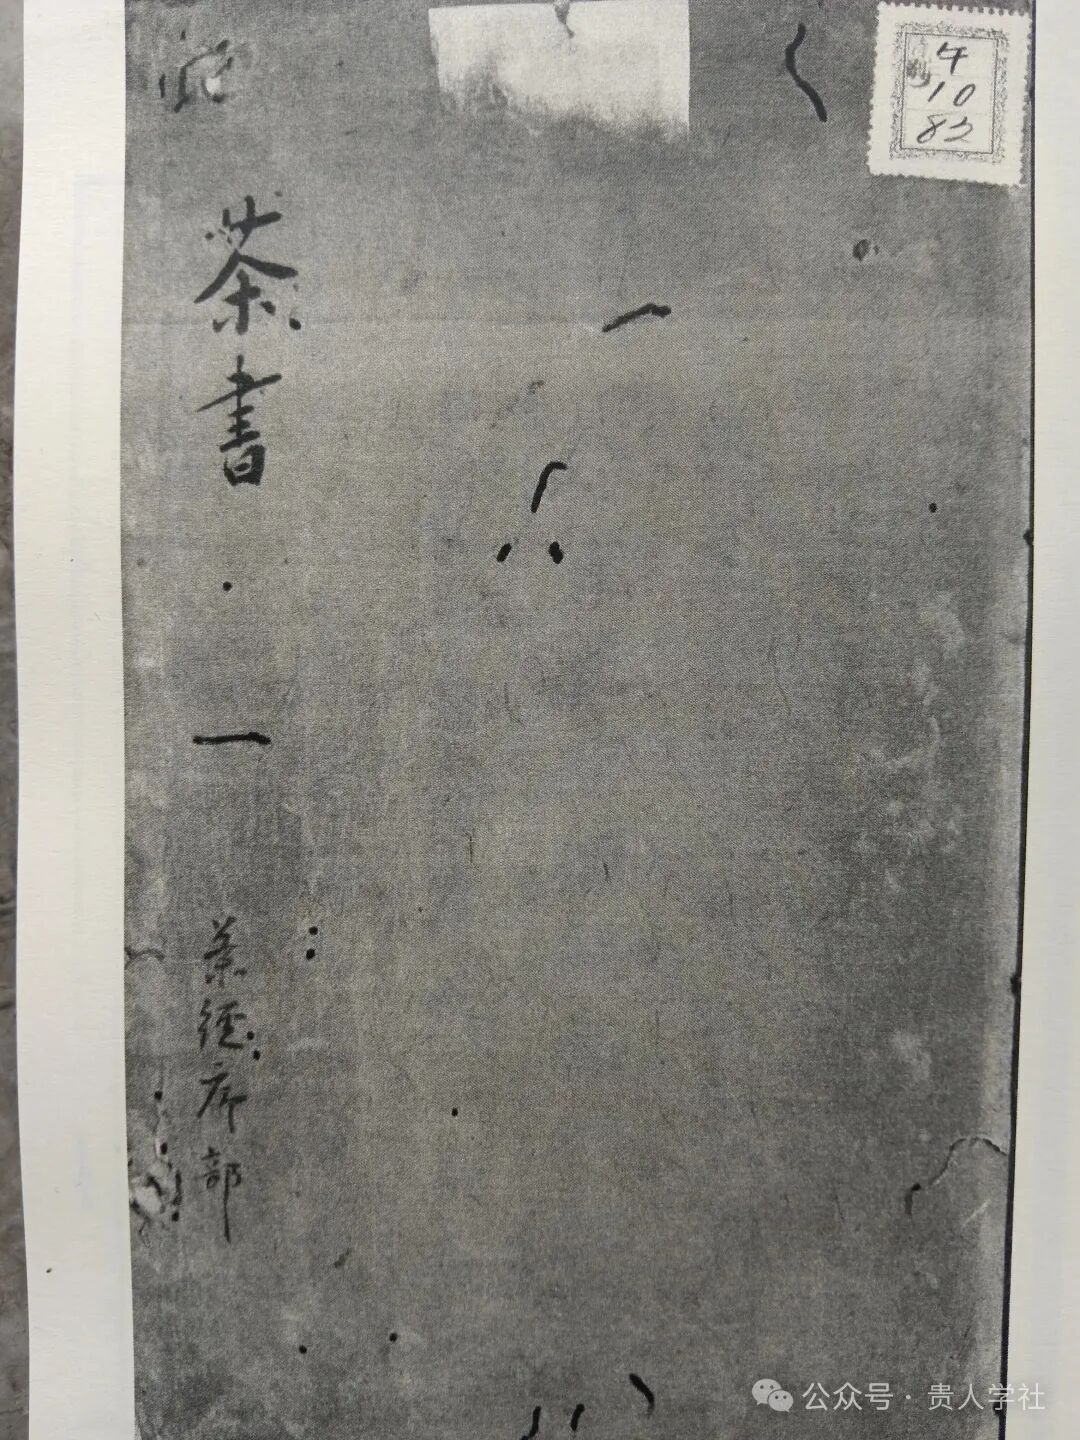 4
10
82
茶書
一
茶經序部
公众号·贵人学社